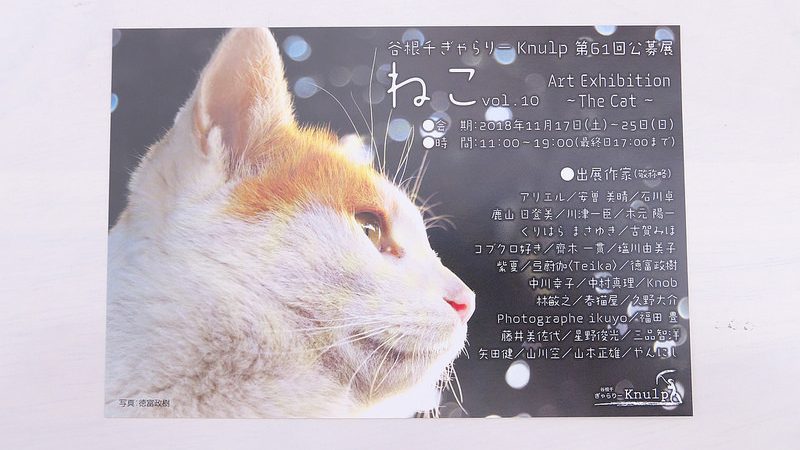 谷根千ぎゃらりーKnulp 第61回公募展
ねこ vol.10
Art Exhibition
～The Cat～
●会 期:2018年11月17日(土)～25日(日)
●時 間:11:00～19:00(最終日17:00まで)
●出展作家(敬称略)
アリエル／安曽 美晴／石川卓
鹿山 日登美／川津一臣／木元 陽一
くりはら まさゆき／古賀みほ
コブクロ好き／齊木 一貫／塩川由美子
紫夏／弖蔚伽(Teika)／徳富政樹
中川幸子／中村真理／Knob
林敏之／春猫屋／久野大介
Photographe ikuyo／福田 豊
藤井美佐代／星野俊光／三品智洋
矢田健／山川空／山本正雄／やんにし
谷根千
ぎゃらりーKnulp
写真:徳富政樹